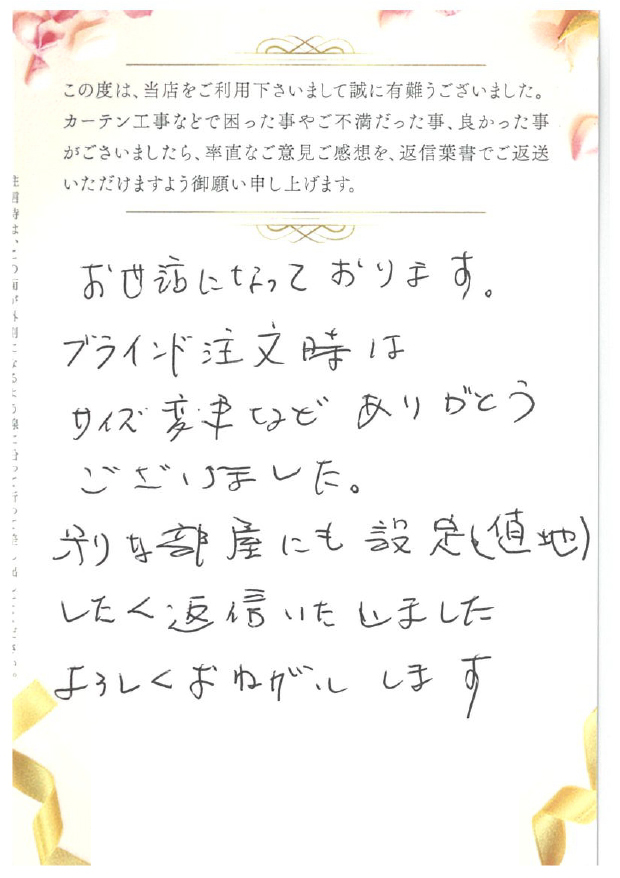 この度は、当店をご利用下さいまして誠に有難うございました。
カーテン工事などで困った事やご不満だった事、良かった事
がございましたら、率直なご意見ご感想を、返信葉書でご返送
いただけますよう御願い申し上げます。
お世話になっております。
ブラインド注文時は
サイズ変更などありがとう
ございました。
な部屋にも設定(値地)
したく返信いたしました
よろしくおねがいします